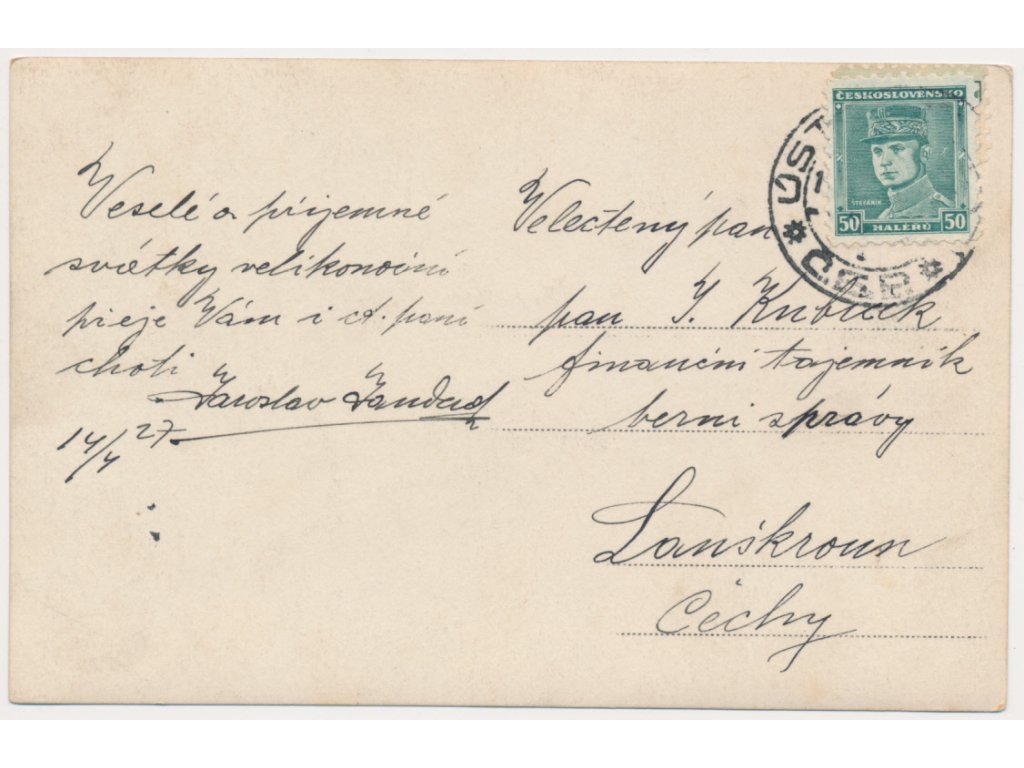 Veselé a příjemné
svátky velikonoční
přeje Vám i ct. paní
choti
Jaroslav
14/4 27.
Velectěný pan
pan J.
finanční tajemník
berní správy
Lanškroun
Čechy
ČESKOSLOVENSKO
ŠTEFÁNIK
50 HALÉŘŮ 50